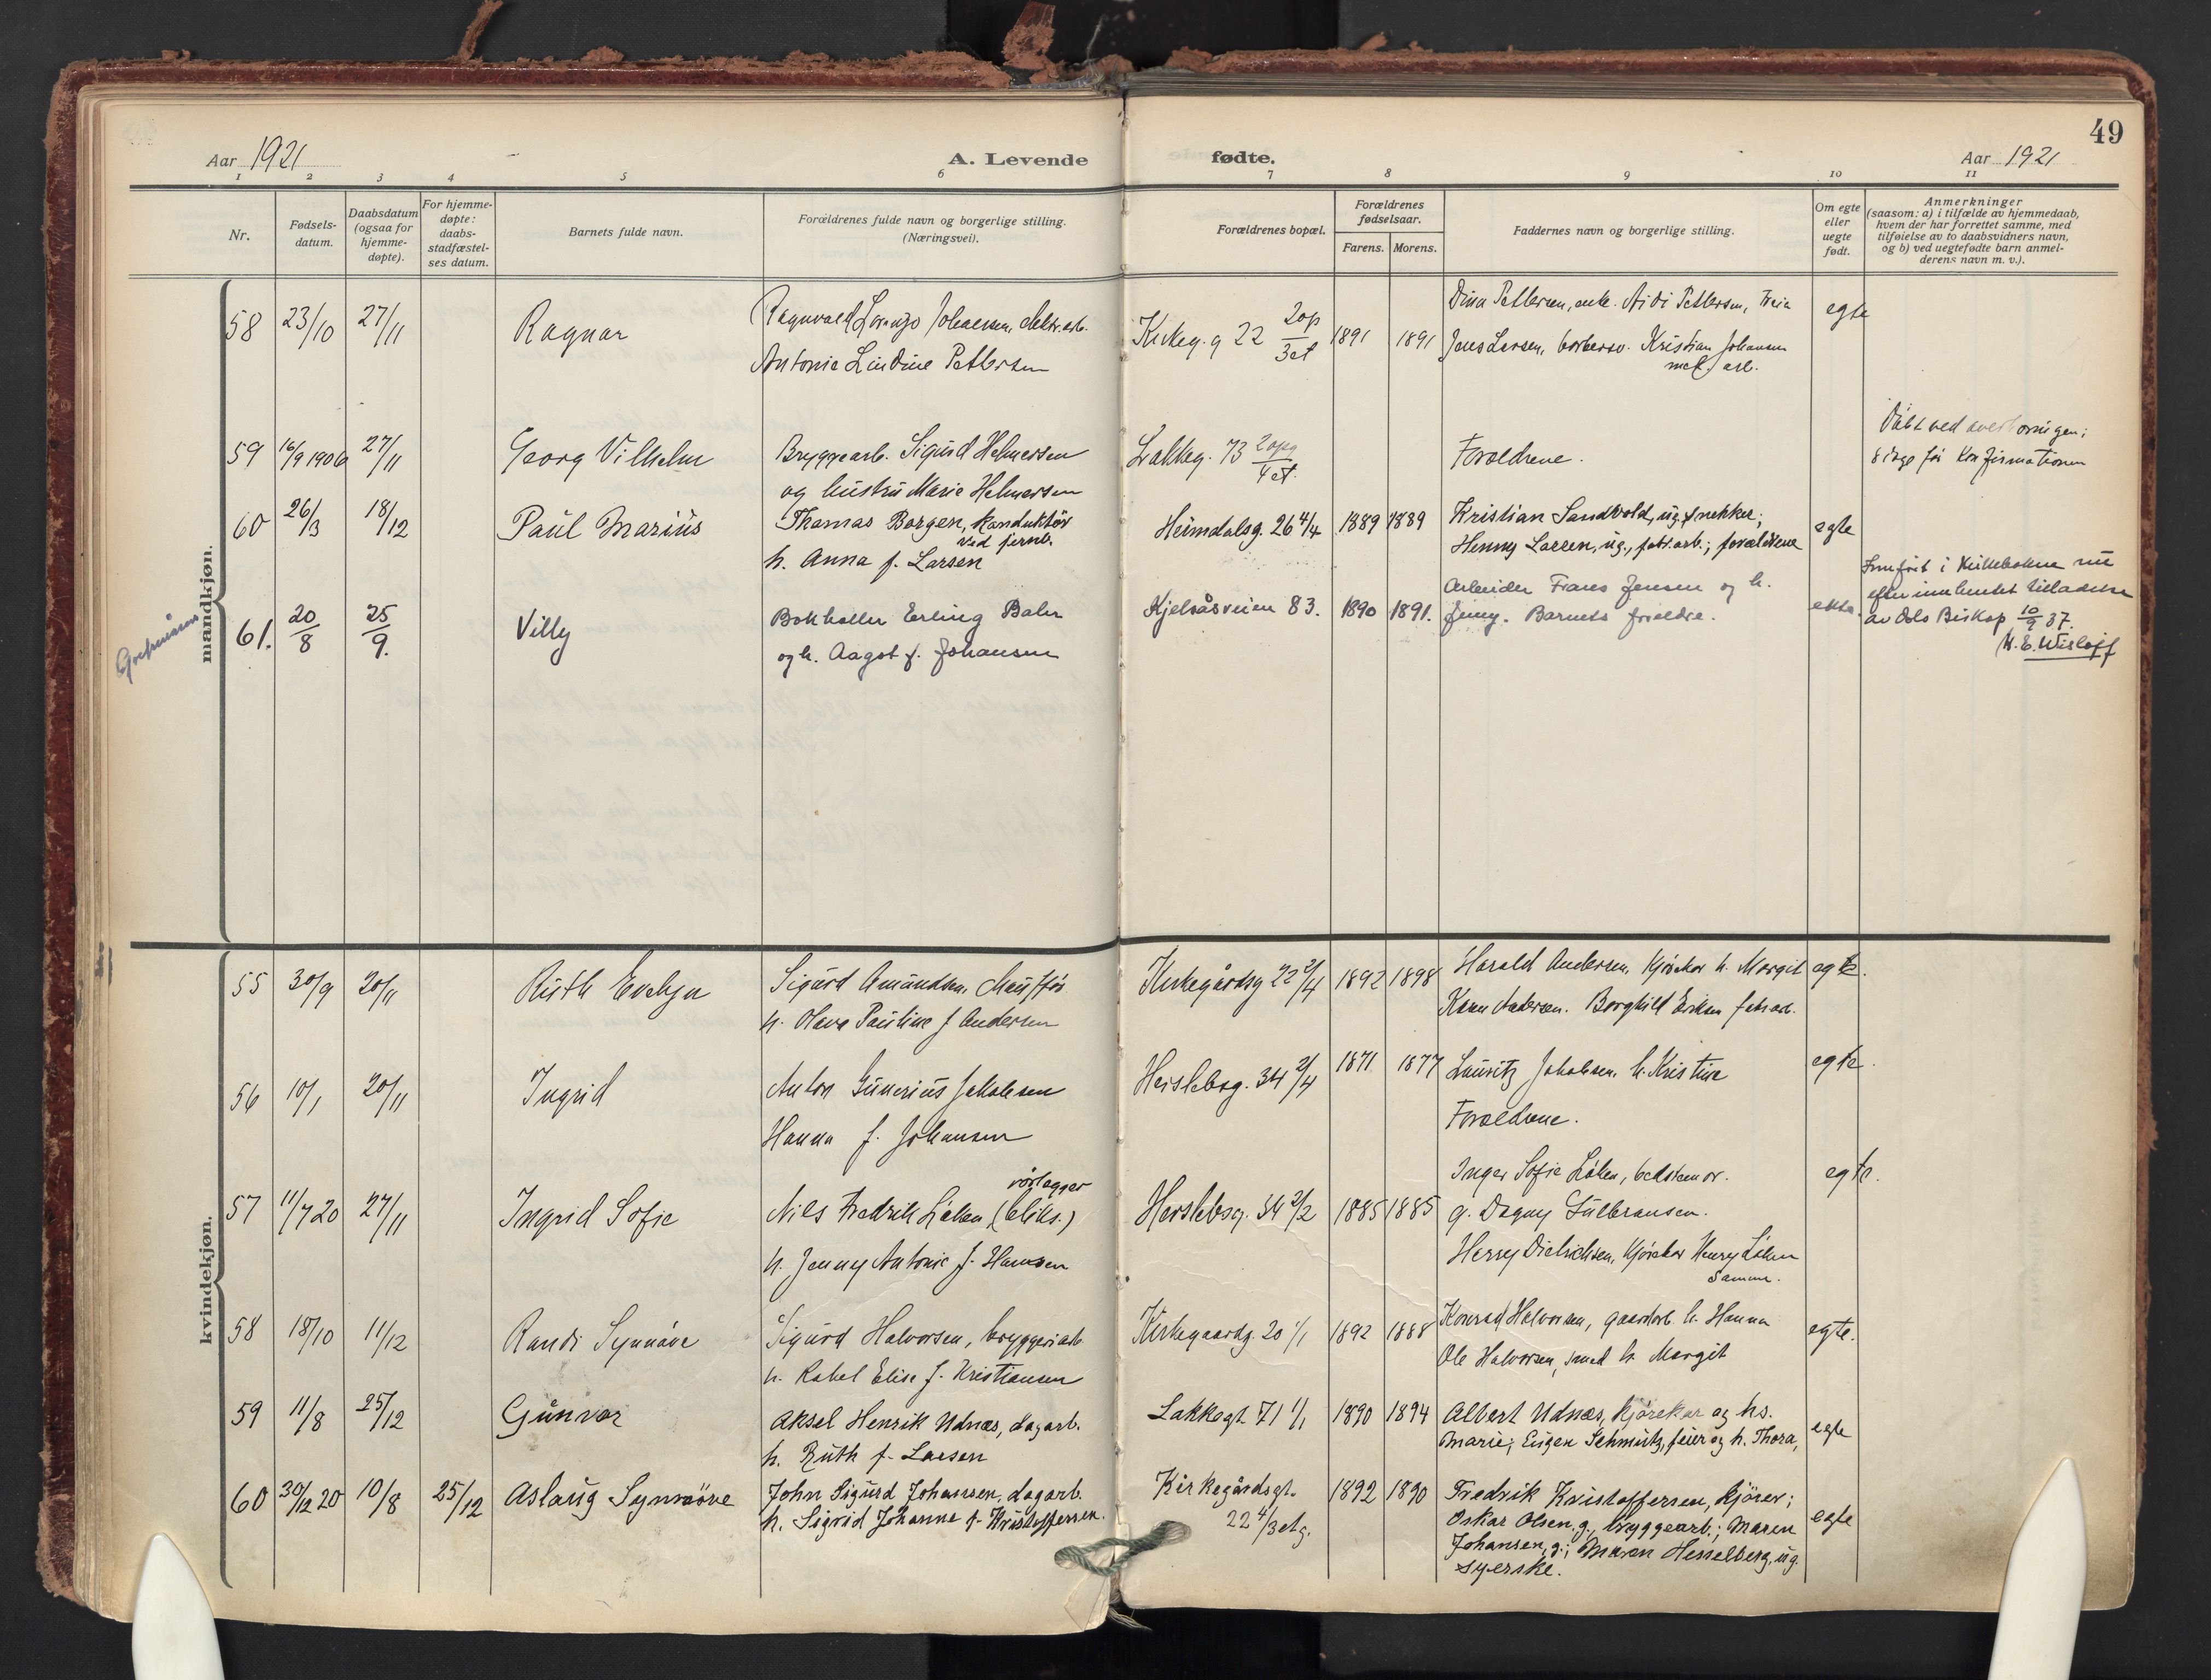 49
Aar 1921
A. Levende
fødte.
Aar 1921
1 2 3 4 5 6 7 8 9 10 11
Nr.
Fødsels-
datum.
Daabsdatum
(ogsaa for
hjemme-
døpte).
For hjemme-
døpte:
daabs-
stadfæstel-
ses datum.
Barnets fulde navn.
Forældrenes fulde navn og borgerlige stilling.
(Næringsvei).
Forældrenes bopæl.
Forældrenes
fødselsaar.
Farens. Morens.
Faddernes navn og borgerlige stilling.
Om egte
eller
uegte
født.
Anmerkninger
(saasom: a) i tilfælde av hjemmedaab,
hvem der har forrettet samme, med
tilføielse av to daabsvidners navn,
og b) ved uegtefødte barn anmel-
derens navn m. v.).
mandkjøn.
58 23/10 27/11 Ragnar
Ragnvald Lorenzo Johansen
Antonie Lindine Pettersen
Kirkeg. g 22 2op/3et
1891 1891
Dina Pettersen, enke. Pettersen, Freia
Jens Larsen, barbersv. Kristian Johansen
mek. arb.
egte
59 16/9 1906 27/11 Georg Vilhelm
Bryggearb. Sigurd Helmersen
og hustru Marie Helmersen
Lakkeg. 73 2opg/4et.
Forældrene.
Døbt ved
8 dage før Konfirmationen
60 26/3 18/12 Paul Marius
Thomas Borgen, konduktør
ved jernb.
h. Anna f. Larsen
Heimdalsg. 26 4/4
1889 1889
Kristian Sandvold, ug., snekker;
Henny Larsen, ug., fabr.arb.; forældrene
egte
61. 20/8 25/9. Villy
Bokholder Erling Bahr
og h. Aagot f. Johansen
Kjelsåsveien 83.
1890 1891.
Arbeider Frans Jensen og h.
Jenny. Barnets foreldre.
ekte.
Innført i Kirkebokene nu
efter innhentet tilladelse
av Oslo Biskop 10/9 37.
H. E. Wisløff
kvindekjøn.
55 30/9 20/11 Ruth Evelyn
Sigurd Amundsen,
h. Olava Pauline f Andersen
Kirkegårdsg 22 2/4
1892 1898
Harald Andersen, Kjørekar h. Margit
Karen Andersen. Borghild Eriksen fabr.arb.
egte.
56 10/1 20/11 Ingrid
Anton Gunerius Jakobsen
Hanna f. Johansen
Herslebsg. 34 2/4
1871 1877
Lauritz Jakobsen. h. Kristine
Forældrene.
egte.
57 11/7 20 27/11 Ingrid Sofie
rørlegger
Nils Fredrik Løken (bliks.)
h. Jenny Antonie f. Hansen
Herslebsg. 34 2/2
1885 1885
Inger Sofie Løken, bedstemor.
g. Dagny Gulbransen.
Henry Dietrichsen, Kjørekar Henry Løken
Samme.
egte.
58 18/10 11/12 Randi Synnøve
Sigurd Halvorsen, bryggeriarb
h. Rakel Elise f. Kristiansen
Kirkegaardsg. 20 1/1
1892 1888
Konrad Halvorsen, gaardarb. h. Hanna
Ole Halvorsen, smed h. Margit
egte.
59 11/8 25/12 Gunvor
Aksel Henrik Udnæs, dagarb.
h. Ruth f. Larsen
Lakkegt. 71 1/1
1890 1894
Albert Udnæs, kjørekar og hs.
Marie; Eugen Schmutz, feier og h. Thora,
egte
60 30/12 20 10/8 25/12 Aslaug Synnøve
John Sigurd Johansen, dagarb.
h. Sigrid Johanne f. Kristoffersen.
Kirkegårdsgt.
22 4/3 etg.
1892 1890
Fredrik Kristoffersen, kjører;
Oskar Olsen, g., bryggearb.; Maren
Johansen, g.; Maren Hesselberg, ug.
syerske.
egte